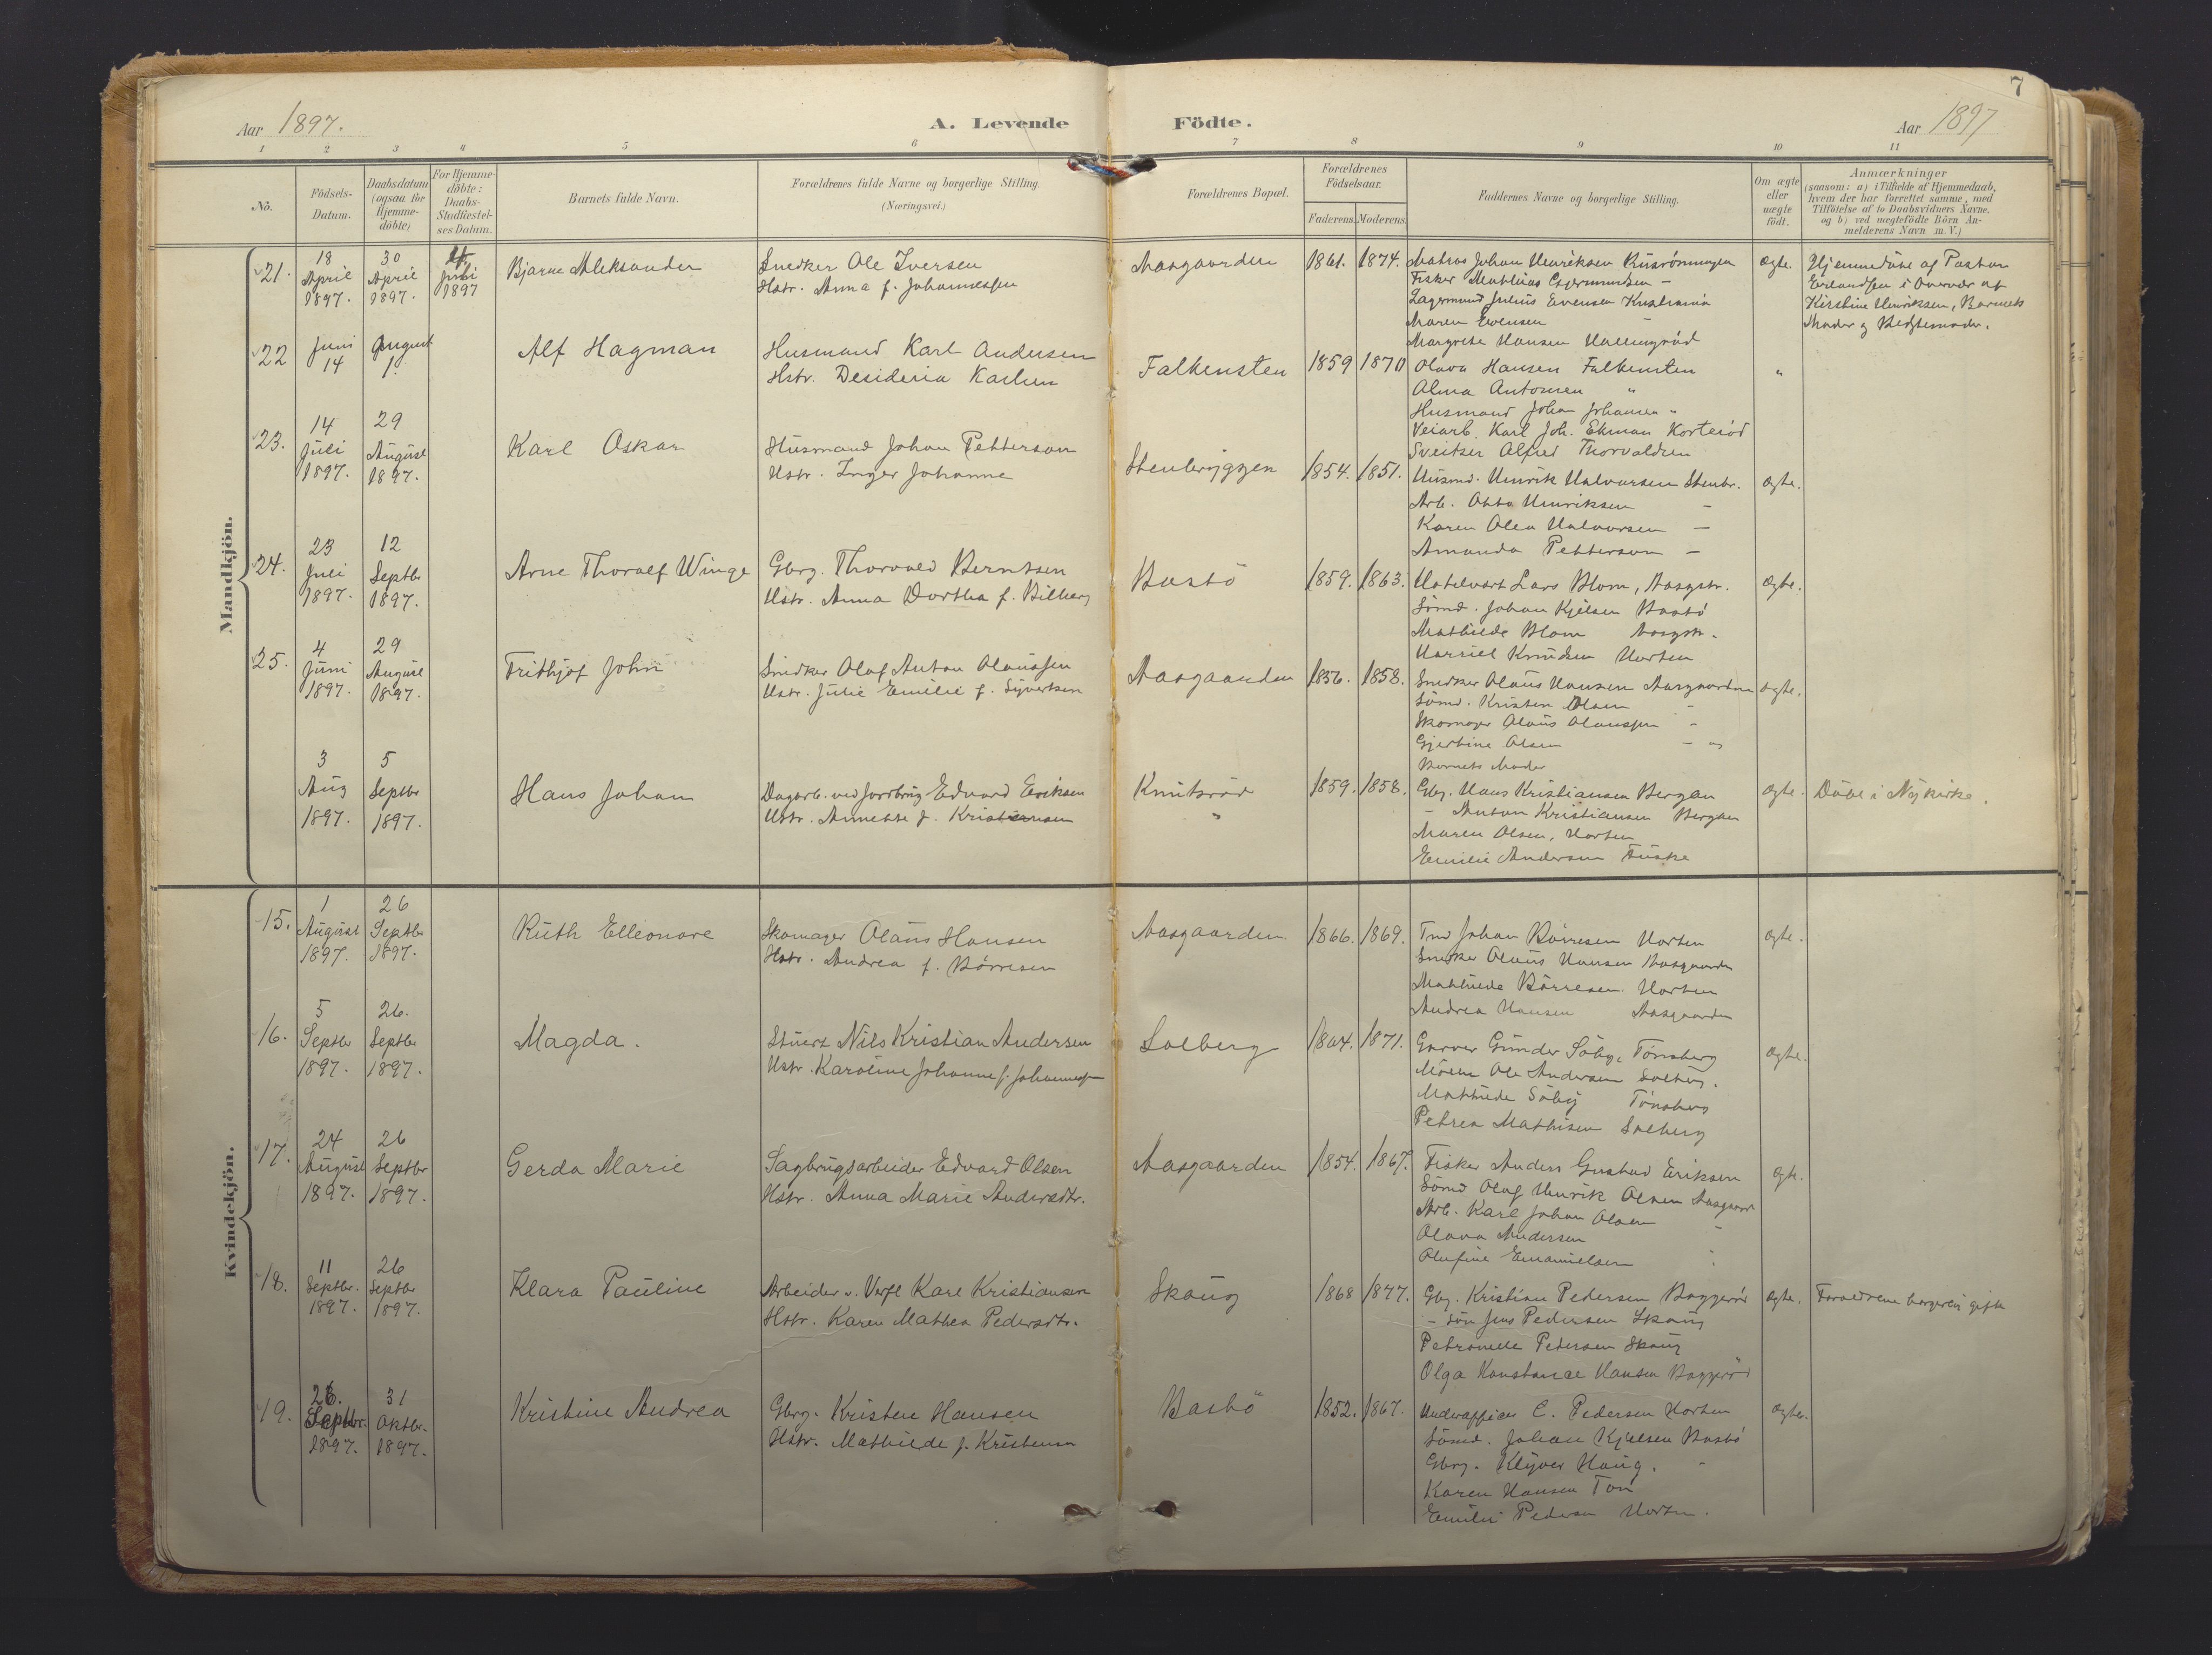 7
Aar 1897.
A. Levende Födte.
Aar 1897
1 2 3 4 5 6 7 8 9 10 11
No.
Födsels-Datum.
Daabsdatum (ogsaa for Hjemme-döbte)
For Hjemme-döbte: Daabs-Stadfæstel-ses Datum.
Barnets fulde Navn.
Forældrenes fulde Navne og borgerlige Stilling.
(Næringsvei.)
Forældrenes Bopæl.
Forældrenes Födselsaar.
Faderens. Moderens.
Faddernes Navne og borgerlige Stilling.
Om ægte eller uægte født.
Anmærkninger
(saasom: a) i Tilfælde af Hjemmedaab,
hvem der har forrettet samme, med
Tilföielse af to Daabsvidners Navne,
og b) ved uægtefödte Börn An-
melderens Navn m. V.)
Mandkjön.
21. 18 April 1897. 30 April 1897. Juli 1897
Bjarne Aleksander
Snedker Ole Iversen
Hstr. Anna f. Johannessen
Aasgaarden 1861. 1874.
Matros Johan Henriksen
Fisker Mathias
Lagermand Julius Evensen Kristiania
Maren Evensen
Margrethe Hansen
ægte.
Hjemmedöbt af Pastor
Erlandsen i Overvær af
Kirstine Henriksen, Barnets
Moder og Bedstemoder.
22 Juni 14 August 1.
Alf Hagman
Husmand Karl Andersen
Hstr. Desideria Karlsen
Falkensten 1859 1870
Olava Hansen Falkensten
Alma Antonsen "
Husmand Johan Johansen "
Veiarb. Karl Joh. Ekman Korterød
Sveitser Alfred Thorvaldsen
"
23. 14 Juli 1897. 29 August 1897.
Karl Oskar
Husmand Johan Petterson
Hstr. Inger Johanne
Stenbryggen 1854. 1851.
Husmd. Henrik Halvorsen Stenbr.
Arb. Otto Henriksen -
Karen Olea Halvorsen -
Amanda Petterson -
ægte.
24. 23 Juli 1897. 12 Septbr 1897.
Arne Thoralf Winge
Gbrg. Thorvald Berntsen
Hstr. Anna Dorthea f. Bilberg
Bastö 1859. 1863.
Hotelvært Lars Blom, Aasgstr.
Sömd. Johan Kjelsen Bastö
Mathilde Blom Aasgstr.
Harriet Knudsen Horten
ægte.
25. 4 Juni 1897. 29 August 1897.
Frithjof John
Snedker Olaf Anton Olaussen
Hstr. Julie Emilie f. Syvertsen
Aasgaarden 1856. 1858.
Snedker Olaus Hansen Aasgaarden
Sömd. Kristen Olsen -
Skomager Olaus Olaussen -
Gjertine Olsen -
Barnets Moder
ægte.
3 Aug 1897. 5 Septbr 1897.
Hans Johan
Dagarb. ved Jordbrug Edvard Eriksen
Hstr. Annette f. Kristiansen
Knutsröd " 1859. 1858.
Gbg. Hans Kristiansen Bergan
- Anton Kristiansen Bergan
Maren Olsen, Horten
Emilie Andersen
ægte.
Döbt i Nykirke.
Kvindekjön.
15. 1 August 1897. 26 Septbr 1897.
Ruth Elleonore
Skomager Olaus Hansen
Hstr. Andrea f. Börresen
Aasgaarden 1866. 1869.
Tmd Johan Börresen Horten
Snedker Olaus Hansen Aasgaarden
Mathilde Börresen Horten
Andrea Hansen Aasgaarden
ægte.
16. 5 Septbr 1897. 26. Septbr 1897.
Magda.
Stuert Nils Kristian Andersen
Hstr. Karoline Johanne f. Johannessen
Solberg 1864. 1871.
Garver Gunder Söby, Tönsberg
Ole Andersen Solberg.
Mathilde Söby Tönsberg
Petrea Mathisen Solberg
ægte.
17. 24 August 1897. 26 Septbr 1897.
Gerda Marie
Sagbrugsarbeider Edvard Olsen
Hstr. Anna Marie Andersdtr.
Aasgaarden 1854. 1867.
Fisker Anders Gustad Eriksen
Sömd Olaf Henrik Olsen Aasgaard
Arb. Karl Johan Olsen
Olava Andersen
Olufine Emanuelsen
ægte.
18. 11 Septbr. 1897. 26 Septbr 1897.
Klara Pauline
Arbeider v. Verft Karl Kristiansen
Hstr. Karen Mathea Pedersdtr.
Skaug 1868 1877.
Gbg. Kristian Pedersen Baggeröd
- sön Jens Pedersen Skaug
Petronelle Pedersen Skaug
Olga Konstance Hansen Baggeröd
ægte.
Forældrene borgerlig gifte
19. 26. Septbr. 1897. 31 Oktbr. 1897.
Kristine Andrea
Gbrg. Kristen Hansen
Hstr. Mathilde f. Kristensen
Bastö 1852. 1867.
Underofficer C. Pedersen Horten
Sömd. Johan Kjelsen Bastö
Gbrg. Klyver Haug. -
Karen Hansen Ton
Emilie Pedersen Horten.
ægte.